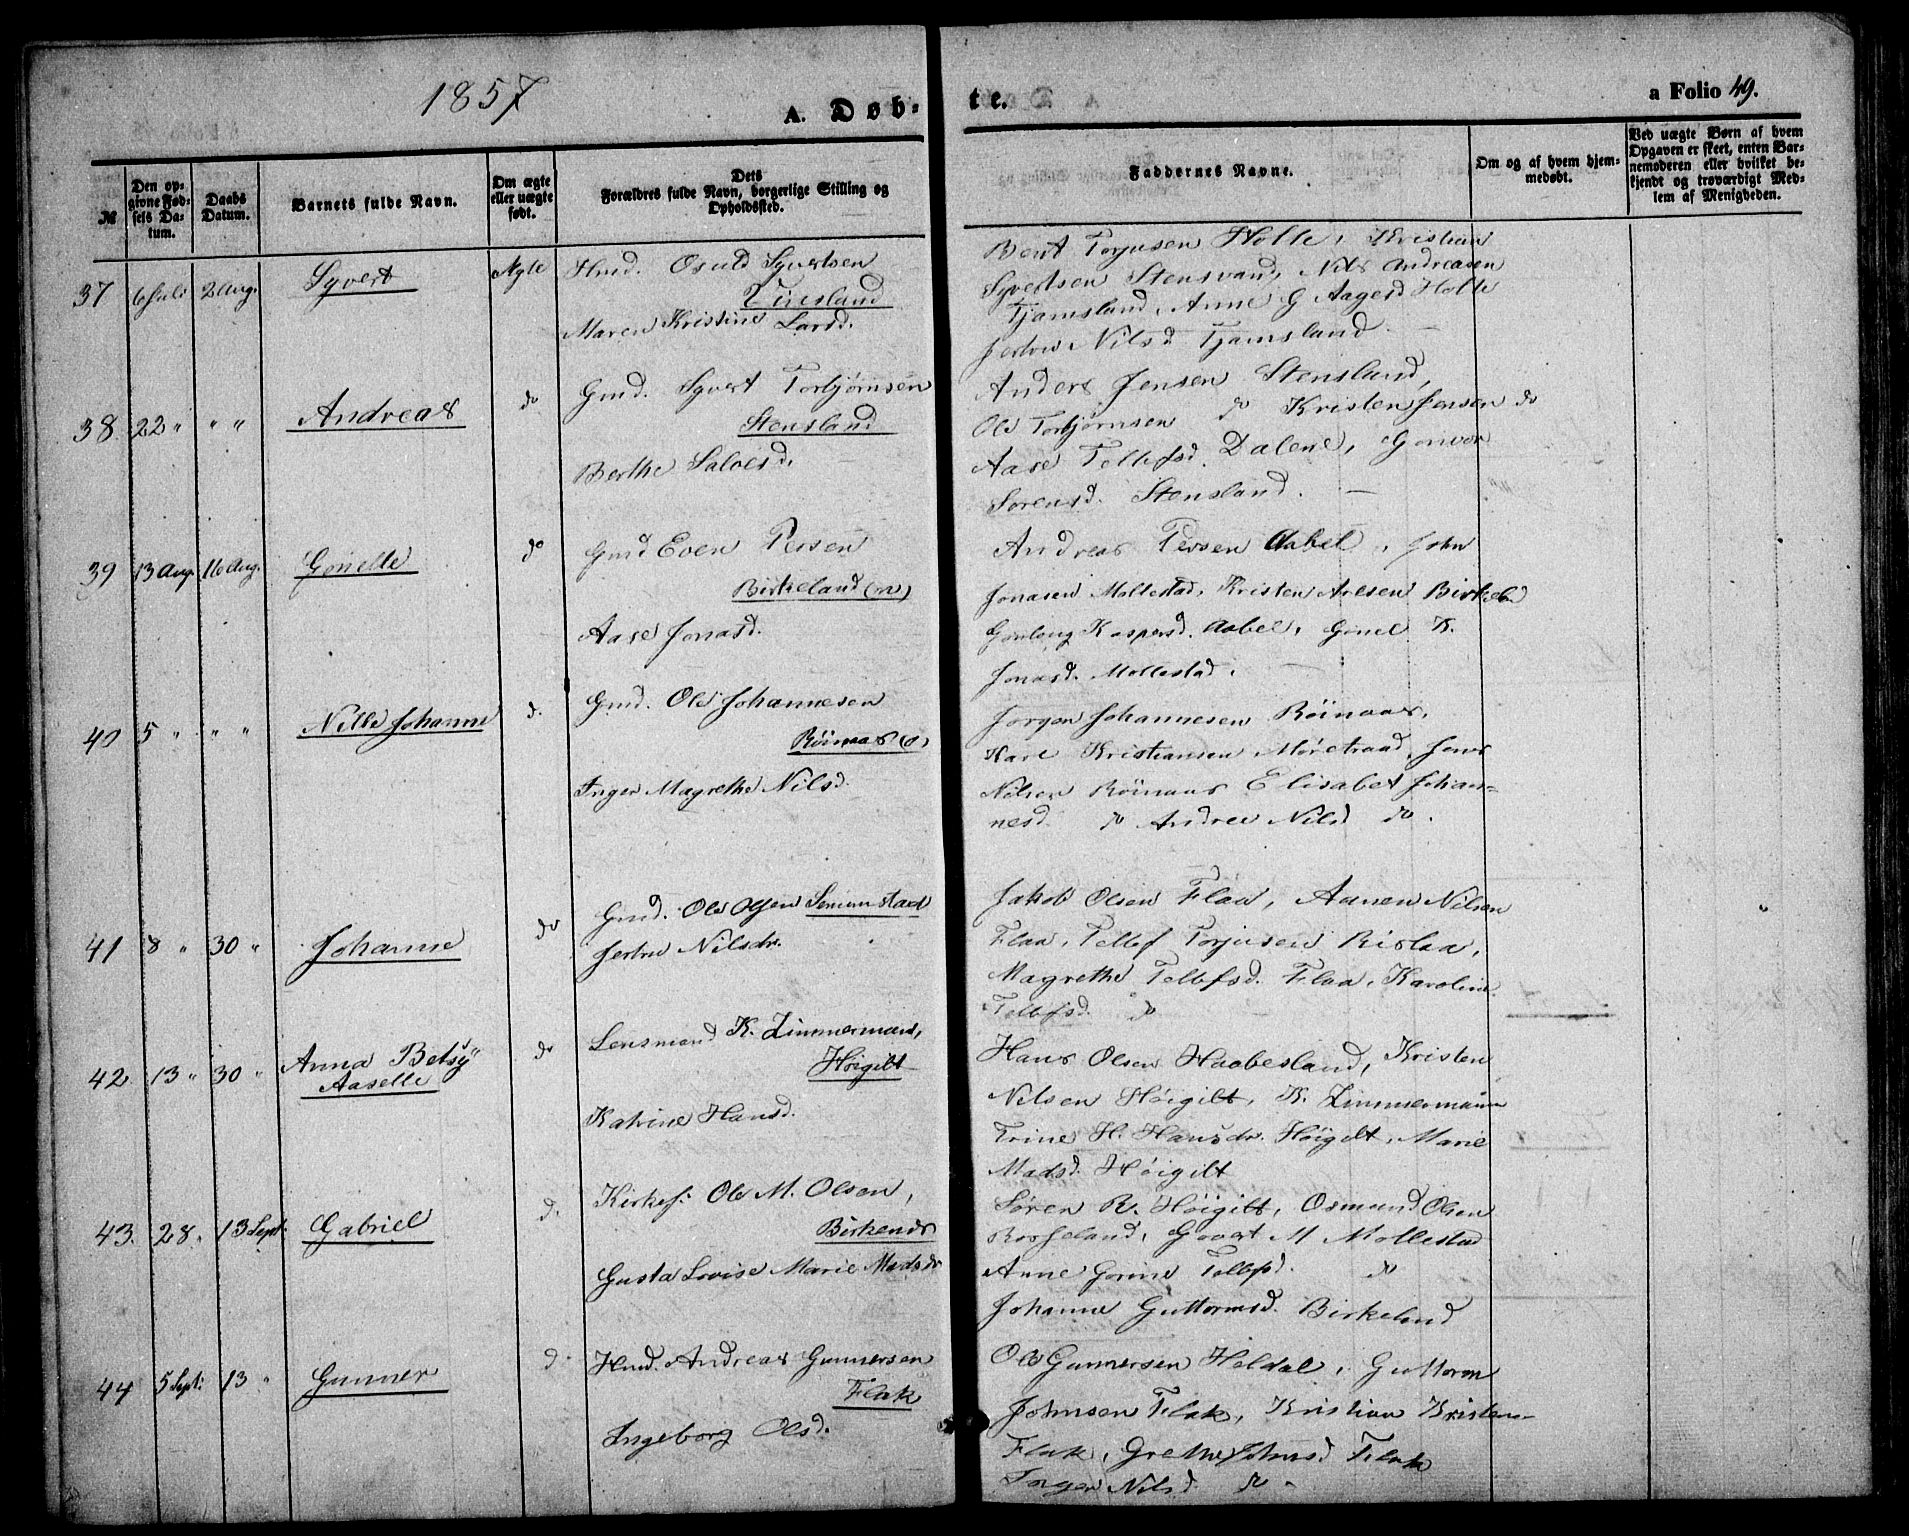 1857
A. Døb-
te.
a Folio 49.
№
Den opgivne Fødsels Datum.
Daabs Datum.
Barnets fulde Navn.
Om ægte eller uægte født.
Dets Forældres fulde Navn, borgerlige Stilling og Opholdssted.
Faddernes Navne.
Om og af hvem hjemmedøbt.
Ved uægte Børn af hvem Opgaven er skeet, enten Barnemoderen eller hvilket bekjendt og troværdigt Medlem af Menigheden.
37 6 Juli 2 Aug. Syvert Ægte Hmd. Osuld Syvertsen
Maren Kristine Larsd.
Bent Torjusen Holte, Kristian
Syvertsen Stensvand, Nils Andreasen
Tjamsland, Anne G Aagesd Holte
Nilsd Tjamsland.
38 22 " " " Andreas do Gmd. Syvert Torbjørnsen
Stensland
Berthe Salvesd.
Anders Jensen Stensland,
Ole Torbjørnsen do Kristen Jensen do
Aase Tellefsd. Dalene, Gonvor
Sørensd. Stensland.
39 13 Aug. 16 Aug. Gonelle do Gmd Even Persen
Birkeland (n)
Aase Jonasd.
Andreas Persen Aabel, John
Jonasen Mollestad, Kristen Birkeld
Gonlaug Kaspersd. Aabel, Gonel K.
Jonasd. Mollestad.
40 5 " " " Nille Johanne d. Gmd. Ole Johannesen
Röinaas (o)
Inger Magrethe Nilsd.
Jørgen Johannesen Röinaas,
Karl Kristiansen Møretraad, Jens
Nilsen Röinaas Elisabet Johan-
nesd. do Andrea Nilsd do.
41 8 " 30 " Johanne do Gmd. Ole Olsen Senumstad
Nilsdr.
Jakob Olsen Flaa, Nilsen
Flaa, Tellef Torjusen Rislaa,
Magrethe Tellefsd. Flaa, Karoline
Tellefsd. do
42 13 " 30 " Anna Betsÿ
Aaselle do Lensmand K. Zimmermann,
Høigilt
Katrine Hansd.
Hans Olsen Haabesland, Kristen
Nilsen Høigilt, K. Zimmermann
Trine H. Hansdr. Høigilt, Marie
Madsd. Høigilt
43. 28 " 13 Sept. Gabriel d. Kirkes. Ole M. Olsen,
Gusta Lovise Marie Madsdr
Søren R. Høigilt, Osmund Olsen
Govert M Mollestad
Anne Gorine Tellefsd. do
Johanne Guttormsd. Birkeland
44 5 Sept. 13 " Gunner d. Hmd. Andreas Gunnersen
Flak
Ingeborg Olsd.
Ole Gunnersen Heldal, Guttorm
Johnsen Flak, Kristian Kristens-
Flak, Grethe Johnsd Flak
Nilsd do